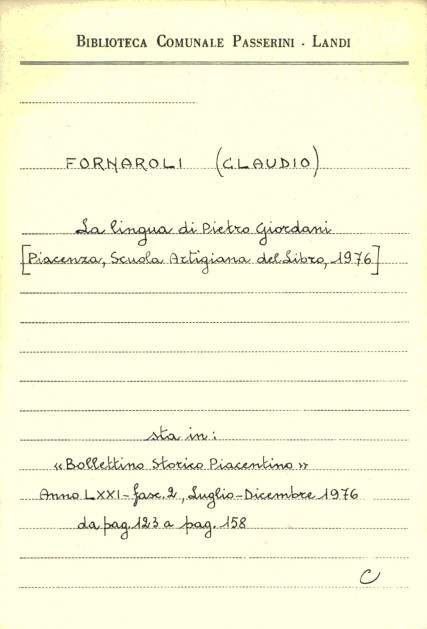 BIBLIOTECA COMUNALE PASSERINI - LANDI
FORNAROLI (CLAUDIO)
La lingua di Pietro Giordani
[Piacenza, Scuola Artigiana del Libro, 1976]
sta in:
«Bollettino Storico Piacentino»
Anno LXXI - fasc. 2, Luglio-Dicembre 1976
da pag. 123 a pag. 158
C